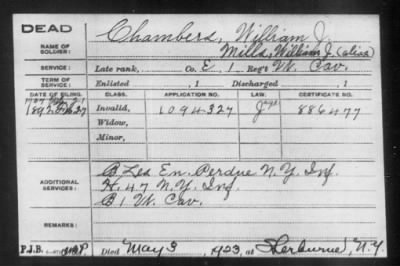 DEAD
Chambers, William J.
NAME OF SOLDIER: Mills, William J. (alias)
SERVICE: Late rank, Co. E, 1 Reg't Vt. Cav.
TERM OF SERVICE: Enlisted , 1 Discharged , 1
DATE OF FILING. CLASS. APPLICATION NO. LAW. CERTIFICATE NO.
1892 Invalid, 1094327 886477
Widow,
Minor,
ADDITIONAL SERVICES:
H. 47 N.Y. Inf.
B 1 Vt. Cav.
REMARKS:
P.J.B. Died May 3, 1923, at Sherburne, N.Y.